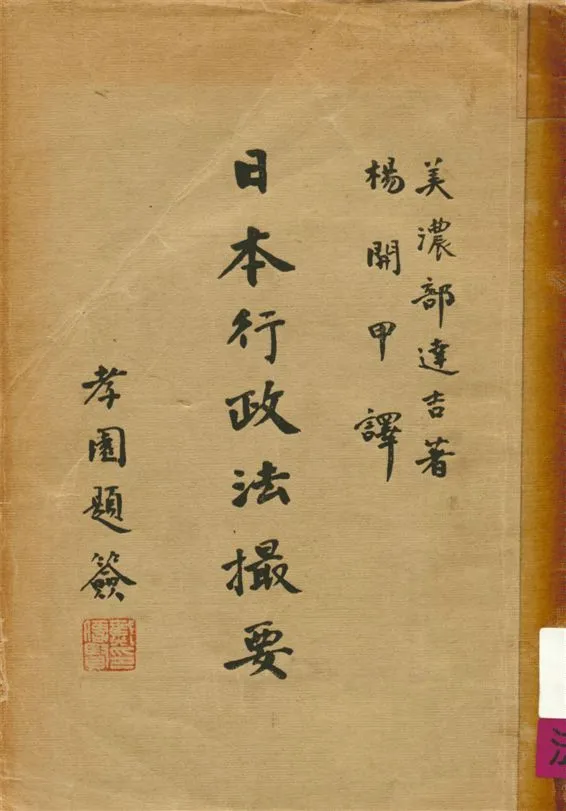 美濃部達吉著
楊開甲譯
日本行政法撮要
孝園題籤
戴傳賢印
法